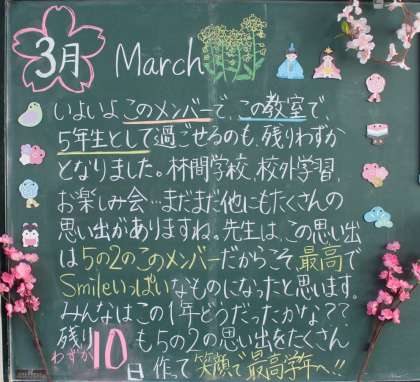 3月 March
いよいよこのメンバーで、この教室で、
5年生として過ごせるのも、残りわずか
となりました。林間学校、校外学習、
お楽しみ会…まだまだ他にもたくさんの
思い出がありますね。先生は、この思い出
は5の2のこのメンバーだからこそ、最高で
Smileいっぱいなものになったと思います。
みんなはこの1年どうだったかな??
残りわずか10日も5の2の思い出をたくさん
作って笑顔で最高学年へ!!